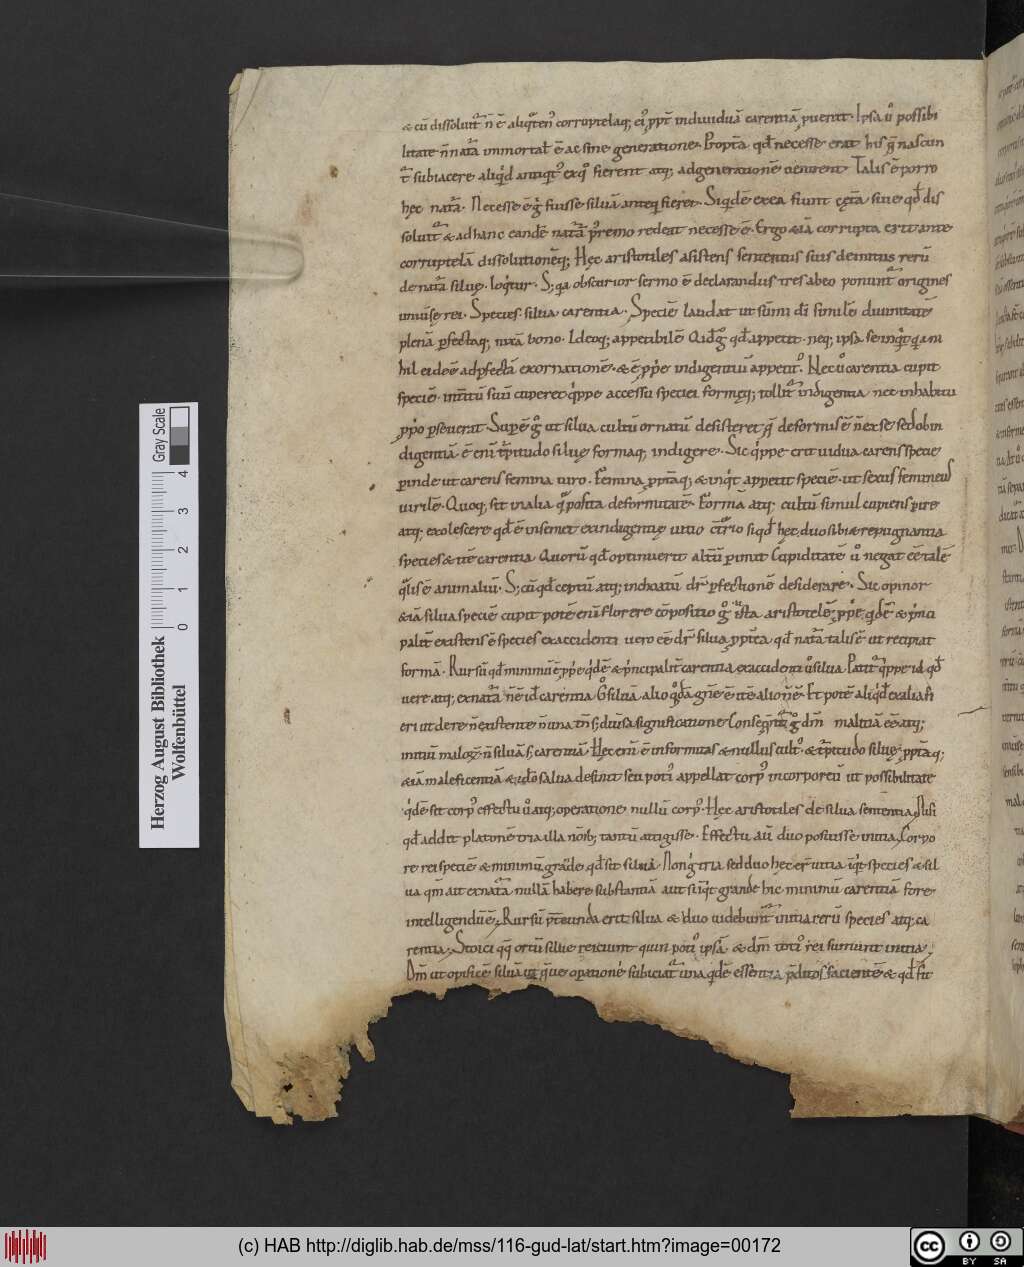 & cū dissoluit᷑ n̄ ē aliq̄ten᷒ corruptelaq; ei᷒ ꝓpt̄ indiuiduā carentiā ꝓuenit. Ipsa ū possibi
litate n̄ natā immortał ē ac sine generatione. Propt̄a qđ necesse erat his q̄ nascun
t᷑ subiacere aliqͥd antiqͥt᷒ ex qͦ fierent atq; ad generationē uenirent. Talis ē porro
hec natā. Necesse ē gͥ fuisse siluā anteq̄ fieret. Siqͥdē ex ea fiunt cęta siue qđ dis
soluit᷑ & ad hanc eandē natā p̄remo redeat necesse ē. Ergo & iā corrupta erit ante
corruptelā dissolutionēq; Hęc aristotiles asistens sententiis suis de initiis rerū
de natā siluę loqͥtur. S; qa obscurior sermo ē declarandus tres ab eo ponunt᷑ origines
uniūsę rei. Species. silua carentia. Speciē laudat ut sūmi dī similē diuinitatē
plenā ꝑfectaq; nixā bono. Ideoq; appetibilē. Qid gͦ qđ appetit. neq; ipsa se inqͥt q̄ ni
hil ei deē ad ꝑfectā exornationē. & ē ꝓpͥe indigentiū appetit᷒. Nec uͦ carentia cupit
speciē. int̄itū suū cuperet qͥppe accessu speciei formęq; tollit᷑ indigentia nec in habitu
ꝓpͥo ꝑseuerat. Suꝑē gͦ ut silua cultū ornatū desisteret q̄ deformis ē n̄ ex se sed ob in
digentiā ē enī t̄pitudo siluę formaq; indigere. Sic qͥppe erit uidua carens specie
ꝑinde ut carens femina uiro. Femina ꝓpt̄aq; & inqͥt appetit speciē. ut sexus femineus
uirilē. Quoq; sit in alia qͣ posita deformitatē. Formā atq; cultū simul cupiens ꝑire
atq; exolescere qđ ē in semet ex indigentię uitio cͦt̄rio siqđ hęc duo sibi ę repugnantia
species & itē carentia. Quorū qđ optinuerit alt̄ū ꝑimit. Cupiditatē uͦ negat eē talē
qͣlis ē animaliū. S; cū qđ ceptū atq; inchoatū dr̄ ꝑfectionē desiderare. Sic opinor
& iā silua speciē cupit potē enī florere cōpositio gͦ ista aristotelē ꝓpͥe qͥdē & pͥnci
palit̄ existens ē species ex accidenti uero eē dr̄ silua ꝓpt̄ea qđ natā talis ē ut recipiat
formā. Rursū qđ minimū ē ꝓpͥe qͥdē & pͥncipalit̄ carentia ex accidenti uͦ silua. Patit᷑ qͥppe id qđ
uere atq; ex natā n̄ ē iđ carentia. Gͦ siluā alio qͦdā gn̄e ē itē alio n̄ ē. Et potē aliqͥd ex alia fi
eri ut de re n̄ existente n̄ una tn̄ s; diūsa significatione. Conseqn̄t᷑ gͦ dm̄ malitiā eē atq;
initiū maloꝝ. n̄ siluā s; carentiā. Hęc enī ē informitas & nullus cult᷒. & t̄pitudo siluę. ꝓpt̄aq;
& iā maleficentiā & ideo salua desinit seu poti᷒ appellat corp᷒ incorporeū ut possibilitate
qͥdē sit corp᷒ effectu uͦ atq; operatione nullū corp᷒. Hęc aristotiles de silua sententia. Nisi
qđ addit platonē tria illa nōib; tantū attigisse. Effectu aū duo posuisse initia. Corpo
re rei speciē & minimū grande qđ sit silua. Non gͥ tria sed duo hęc er̄ initia iqͥt species & sil
ua qm̄ ait ex natā nullā habere substantiā aut si iqͥt grande hic minimū carentiā fore
intelligendū ē. Rursū p̄t̄eunda erit silua & duo uidebunt᷑ initia rerū species atq; ca
rentia. Stoici qq̄ ortū silue reiciunt quin poti᷒ ipsā & dm̄ toti᷒ rei sumunt initia.
Dm̄ ut opificē siluā ut quę oꝑationi subiciat᷑ una qͥdē essentia p̄ditos facientē & qđ fit
Herzog August Bibliothek
Wolfenbüttel
0 1 2 3 4
Gray Scale
(c) HAB http://diglib.hab.de/mss/116-gud-lat/start.htm?image=00172
cc BY SA